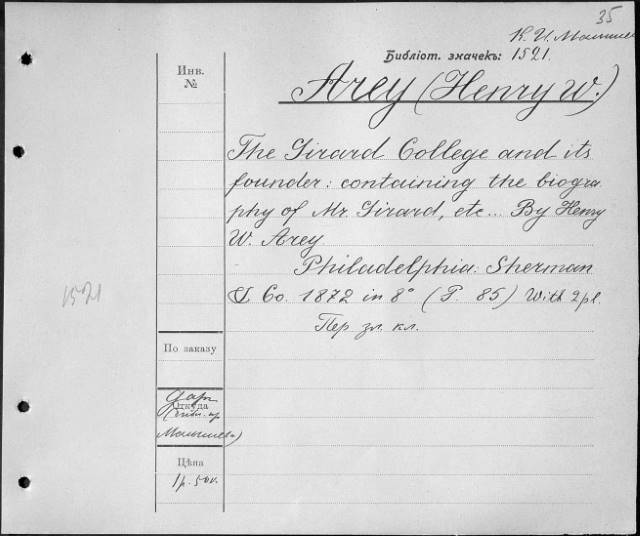 35
К. И.
Библіот. значекъ: 1521.
Инв.
№
Arey (Henry W.)
The Girard College and its
founder: containing the biogra
phy of Mr. Girard, etc... By Henry
W. Arey
Philadelphia: Sherman
& Co. 1872 in 8° (P. 85) With 2 pl.
Пер зл. кл.
1521
По заказу
Даръ
Откуда
Цѣна
1 р. 50 к.